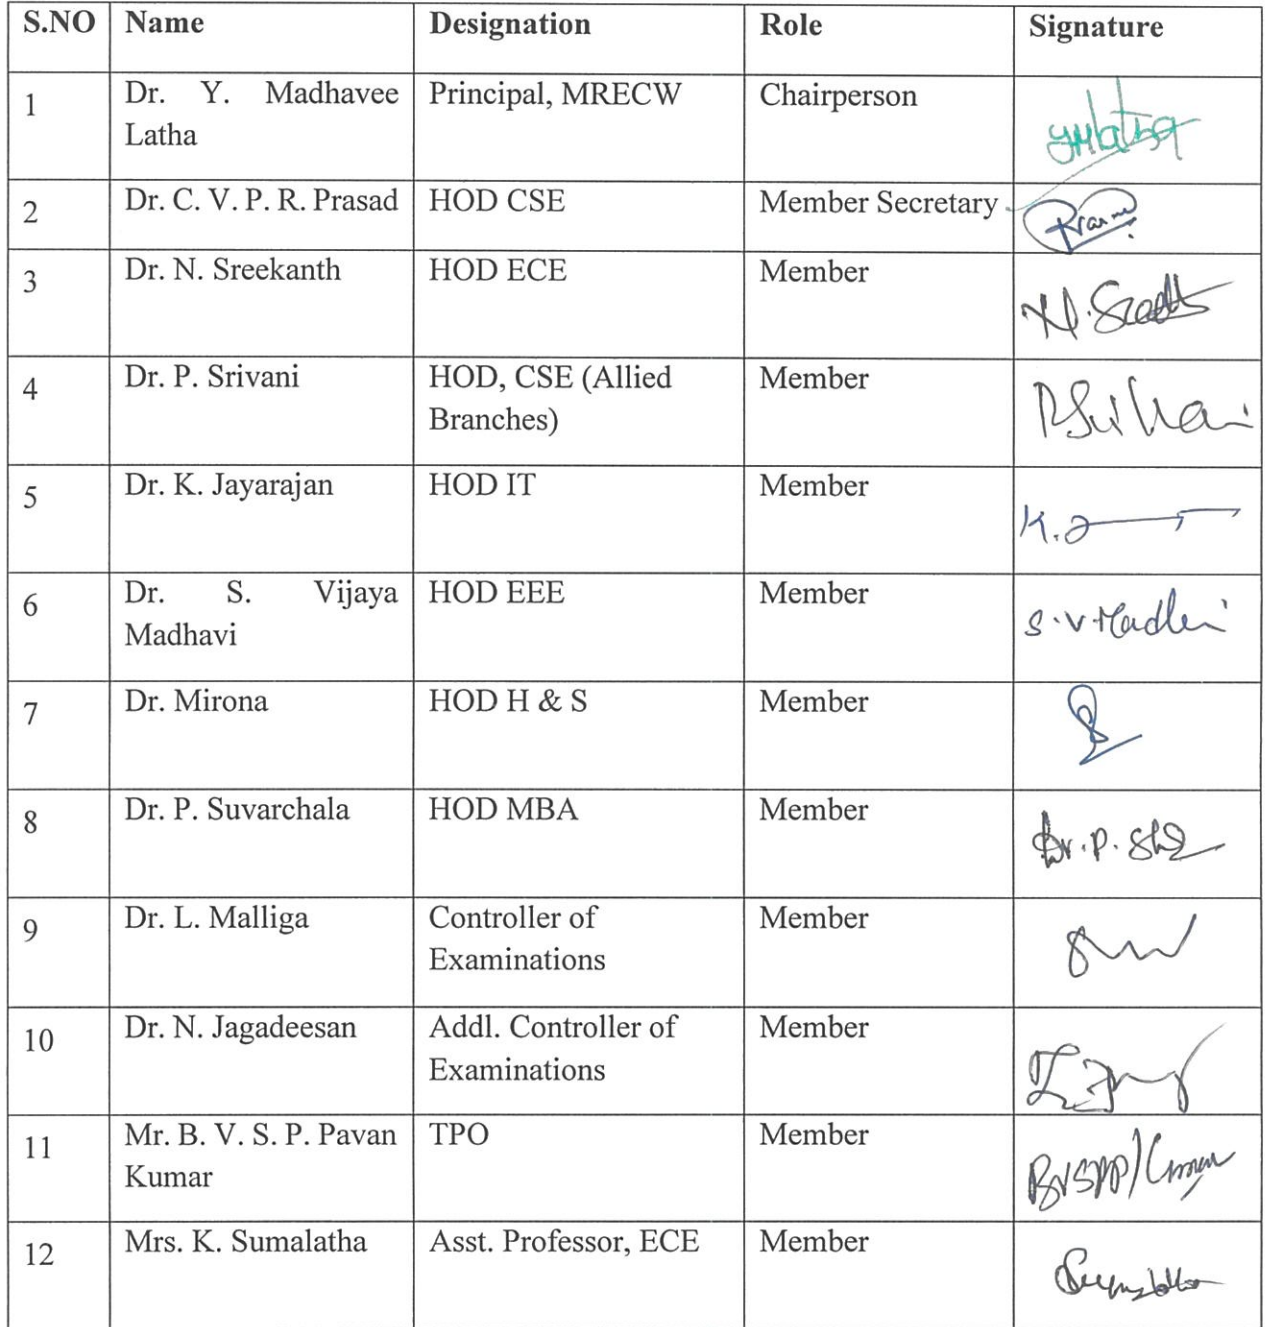 S.NO Name Designation Role Signature
1 Dr. Y. Madhavee Principal, MRECW Chairperson
Latha
2 Dr. C. V. P. R. Prasad HOD CSE Member Secretary
3 Dr. N. Sreekanth HOD ECE Member
4 Dr. P. Srivani HOD, CSE (Allied Member
Branches)
5 Dr. K. Jayarajan HOD IT Member
6 Dr. S. Vijaya HOD EEE Member
Madhavi
7 Dr. Mirona HOD H & S Member
8 Dr. P. Suvarchala HOD MBA Member
9 Dr. L. Malliga Controller of Member
Examinations
10 Dr. N. Jagadeesan Addl. Controller of Member
Examinations
11 Mr. B. V. S. P. Pavan TPO Member
Kumar
12 Mrs. K. Sumalatha Asst. Professor, ECE Member